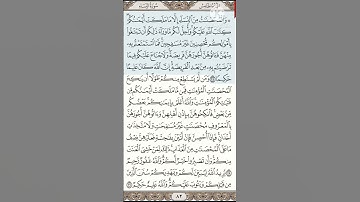 سورة النساء
۞ وَٱلْمُحْصَنَٰتُ مِنَ ٱلنِّسَآءِ إِلَّا مَا مَلَكَتْ أَيْمَٰنُكُمْ
كِتَٰبَ ٱللَّهِ عَلَيْكُمْ وَأُحِلَّ لَكُم مَّا وَرَآءَ ذَٰلِكُمْ أَن تَبْتَغُوا۟
بِأَمْوَٰلِكُم مُّحْصِنِينَ غَيْرَ مُسَٰفِحِينَ فَمَا ٱسْتَمْتَعْتُم بِهِۦ
مِنْهُنَّ فَـَٔاتُوهُنَّ أُجُورَهُنَّ فَرِيضَةً وَلَا جُنَاحَ عَلَيْكُمْ فِيمَا
تَرَٰضَيْتُم بِهِۦ مِنۢ بَعْدِ ٱلْفَرِيضَةِ إِنَّ ٱللَّهَ كَانَ عَلِيمًا
حَكِيمًا ٢٤ وَمَن لَّمْ يَسْتَطِعْ مِنكُمْ طَوْلًا أَن يَنكِحَ
ٱلْمُحْصَنَٰتِ ٱلْمُؤْمِنَٰتِ فَمِن مَّا مَلَكَتْ أَيْمَٰنُكُم مِّن
فَتَيَٰتِكُمُ ٱلْمُؤْمِنَٰتِ وَٱللَّهُ أَعْلَمُ بِإِيمَٰنِكُم بَعْضُكُم
مِّنۢ بَعْضٍ فَٱنكِحُوهُنَّ بِإِذْنِ أَهْلِهِنَّ وَءَاتُوهُنَّ أُجُورَهُنَّ
بِٱلْمَعْرُوفِ مُحْصَنَٰتٍ غَيْرَ مُسَٰفِحَٰتٍ وَلَا مُتَّخِذَٰتِ
أَخْدَانٍ فَإِذَآ أُحْصِنَّ فَإِنْ أَتَيْنَ بِفَٰحِشَةٍ فَعَلَيْهِنَّ نِصْفُ مَا
عَلَى ٱلْمُحْصَنَٰتِ مِنَ ٱلْعَذَابِ ذَٰلِكَ لِمَنْ خَشِىَ ٱلْعَنَتَ
مِنكُمْ وَأَن تَصْبِرُوا۟ خَيْرٌ لَّكُمْ وَٱللَّهُ غَفُورٌ رَّحِيمٌ
٢٥ يُرِيدُ ٱللَّهُ لِيُبَيِّنَ لَكُمْ وَيَهْدِيَكُمْ سُنَنَ ٱلَّذِينَ
مِن قَبْلِكُمْ وَيَتُوبَ عَلَيْكُمْ وَٱللَّهُ عَلِيمٌ حَكِيمٌ ٢٦
٨٢